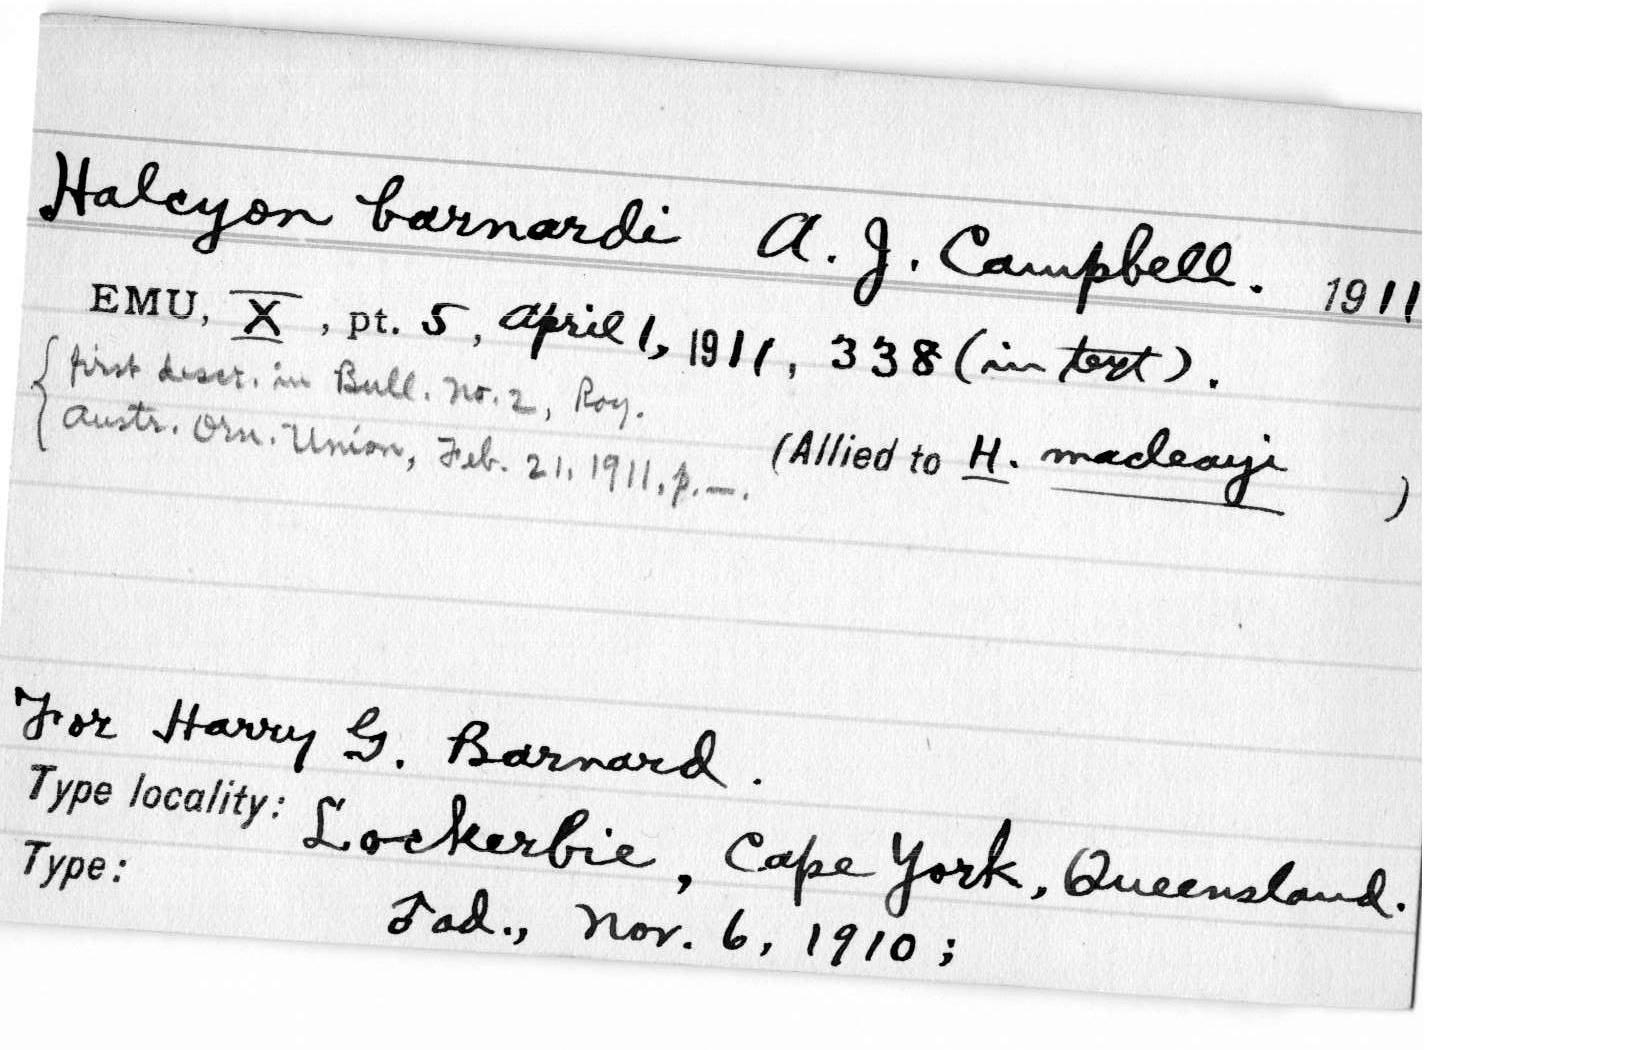 Halcyon barnardi A. J. Campbell. 1911
EMU, X, pt. 5, April 1, 1911, 338 (in text).
{first descr. in Bull. No. 2, Roy.
Austr. Orn. Union, Feb. 21, 1911, p. —.
(Allied to H. macleayi )
For Harry G. Barnard.
Type locality: Lockerbie, Cape York, Queensland.
Type:
F ad., Nov. 6, 1910;